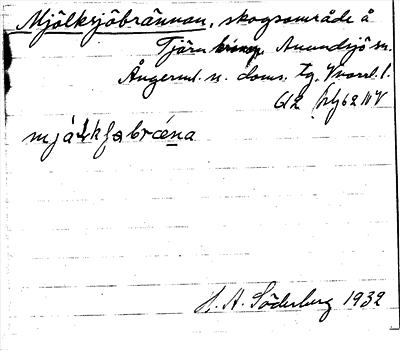 Mjölksjöbrännan, skogsområde å
Tjärn Anundsjö sn.
Ångerml. n. doms. tg. Vnorrl. l.
G2 62 NV
mjålkʃəbrǽna
H. A. Söderberg 1932